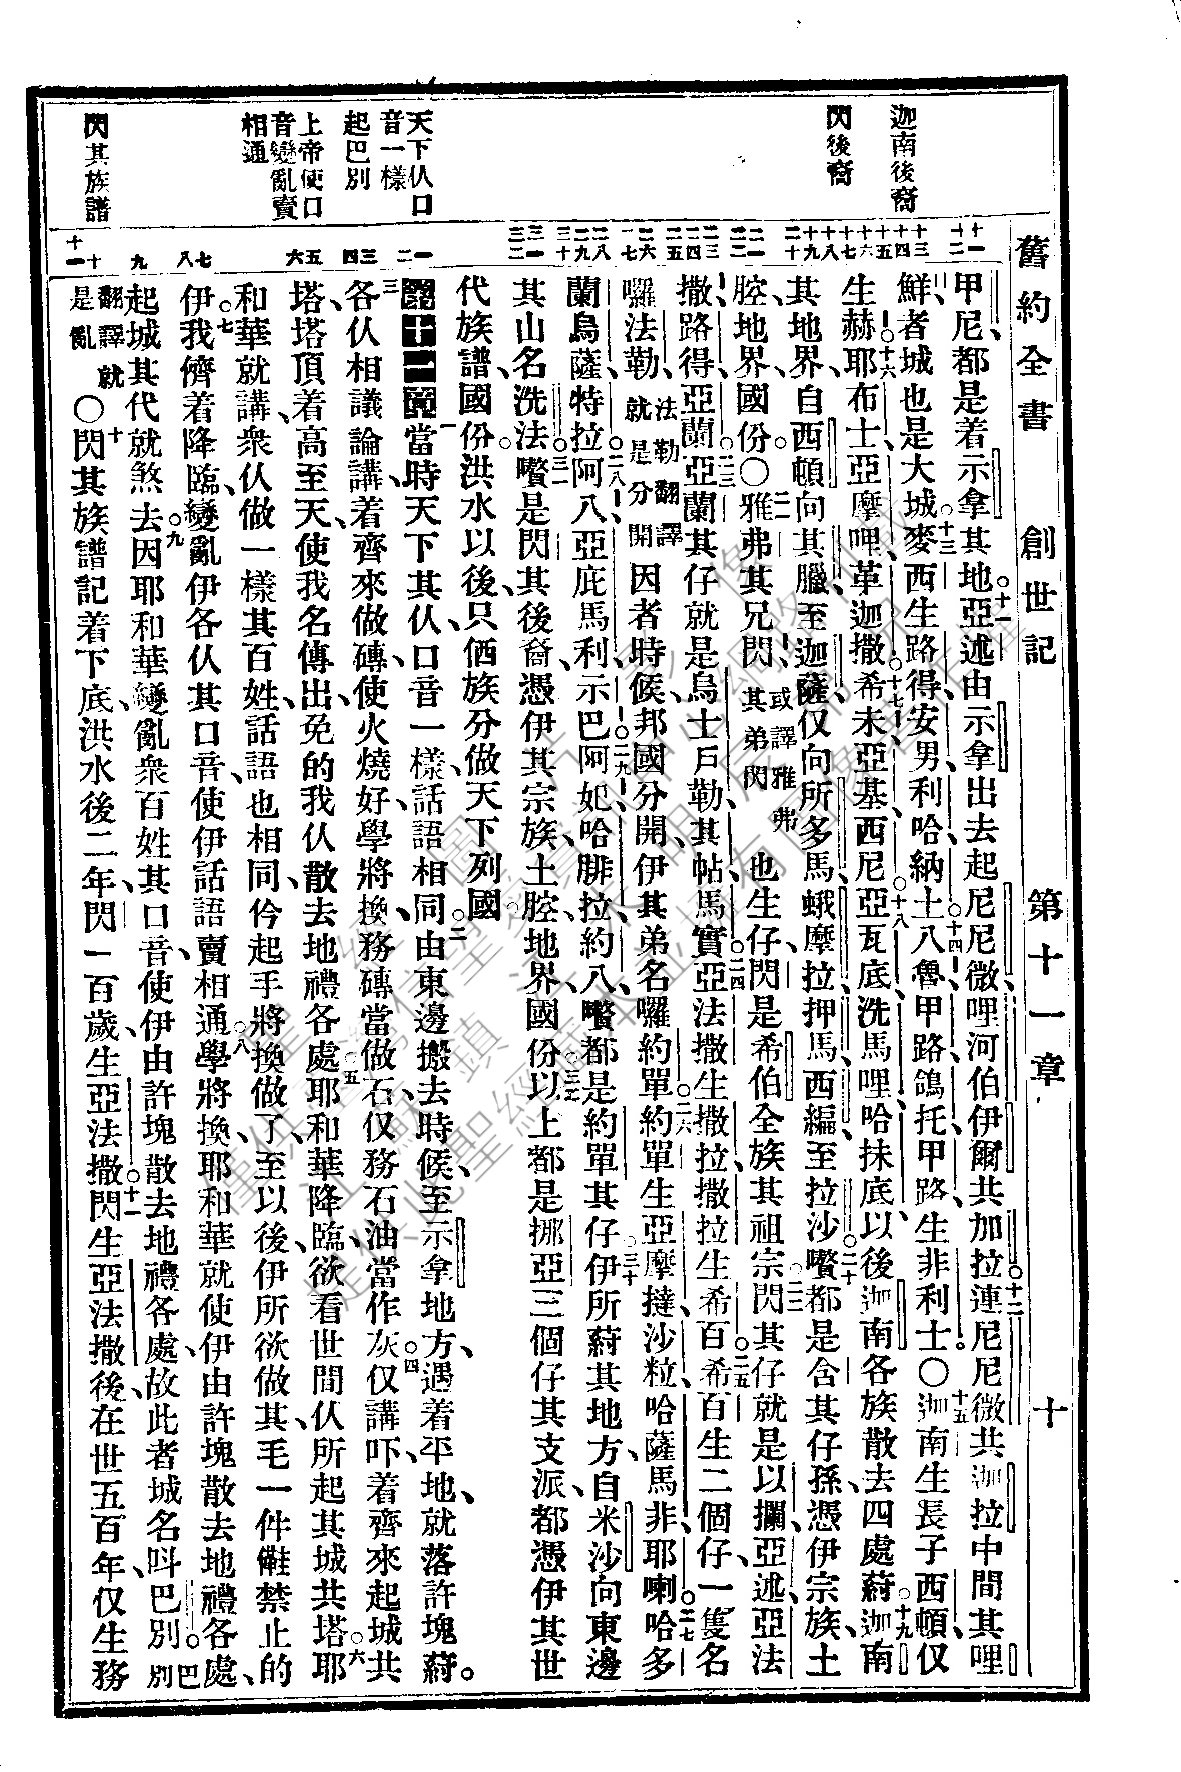 舊約全書 創世記 第十一章 十
迦南後裔
閃後裔
天下仈口
音一樣
起巴別
上帝使口
音變亂賣
相通
閃其族譜
甲尼、都是着示拿其地。十一亞述由示拿出去起尼尼微、哩河伯、伊爾、共加拉。十二連尼尼微共迦拉中間其哩
鮮者城也是大城。十三麥西生路得、安男、利哈納、土八魯、十四甲路鴿托甲路生非利士。○十五迦南生長子西頓、仅
生赫、十六耶布士、亞摩哩、革迦撒、十七希未、亞基、西尼、十八亞瓦底、洗馬哩、哈抹底、以後迦南各族散去四處。十九蔚迦南
其地界、自西頓向其臘至迦薩、仅向所多馬、蛾摩拉、押馬、西編、至拉沙。二十嚽都是含其仔孫、憑伊宗族、土
腔、地界、國份。○二一雅弗其兄閃、或譯雅弗其弟閃也生仔、閃是希伯全族其祖宗。二二閃其仔就是以攔、亞述、亞法
撒、路得、亞蘭。二三亞蘭其仔就是烏士、戶勒、其帖、馬實。二四亞法撒生撒拉、撒拉生希百。二五希百生二個仔、一隻名
囉法勒、法勒翻譯就是分開因者時候、邦國分開、伊其弟名囉約單。二六約單生亞摩撻、沙粒、哈薩馬非、耶喇、二七哈多
蘭、烏薩、特拉、二八阿八、亞庇馬利、示巴、二九阿妃、哈腓拉、約八、嚽都是約單其仔。三十伊所蔚其地方、自米沙向東邊
其山、名洗法。三一嚽是閃其後裔、憑伊其宗族、土腔、地界、國份。三二以上都是挪亞三個仔其支派、都憑伊其世
代族譜、國份、洪水以後、只倃族分做天下列國。
第十一章一當時天下其仈、口音一樣、話語相同。二由東邊搬去時候、至示拿地方、遇着平地、就落許塊蔚。
三各仈相議論講、着齊來做磚、使火燒好、學將換、務磚當做石、仅務石油當作灰。四仅講、吓着齊來起城共
塔、塔頂着高至天、使我名傳出、免的我仈散去地禮各處。五耶和華降臨、欲看世間仈所起其城共塔。六耶
和華就講、衆仈做一樣其百姓、話語也相同、仱起手將換做了、至以後伊所欲做其、毛一件𣍐禁止的
伊。七我儕着降臨、變亂伊各仈其口音、使伊話語賣相通。八學將換、耶和華就使伊由許塊散去地禮各處、
起城其代就煞去。九因耶和華變亂衆百姓其口音、使伊由許塊散去地禮各處、故此者城名呌巴別。巴別
翻譯就是亂○十閃其族譜記着下底、洪水後二年、閃一百歲生亞法撒。十一閃生亞法撒後、在世五百年、仅生務